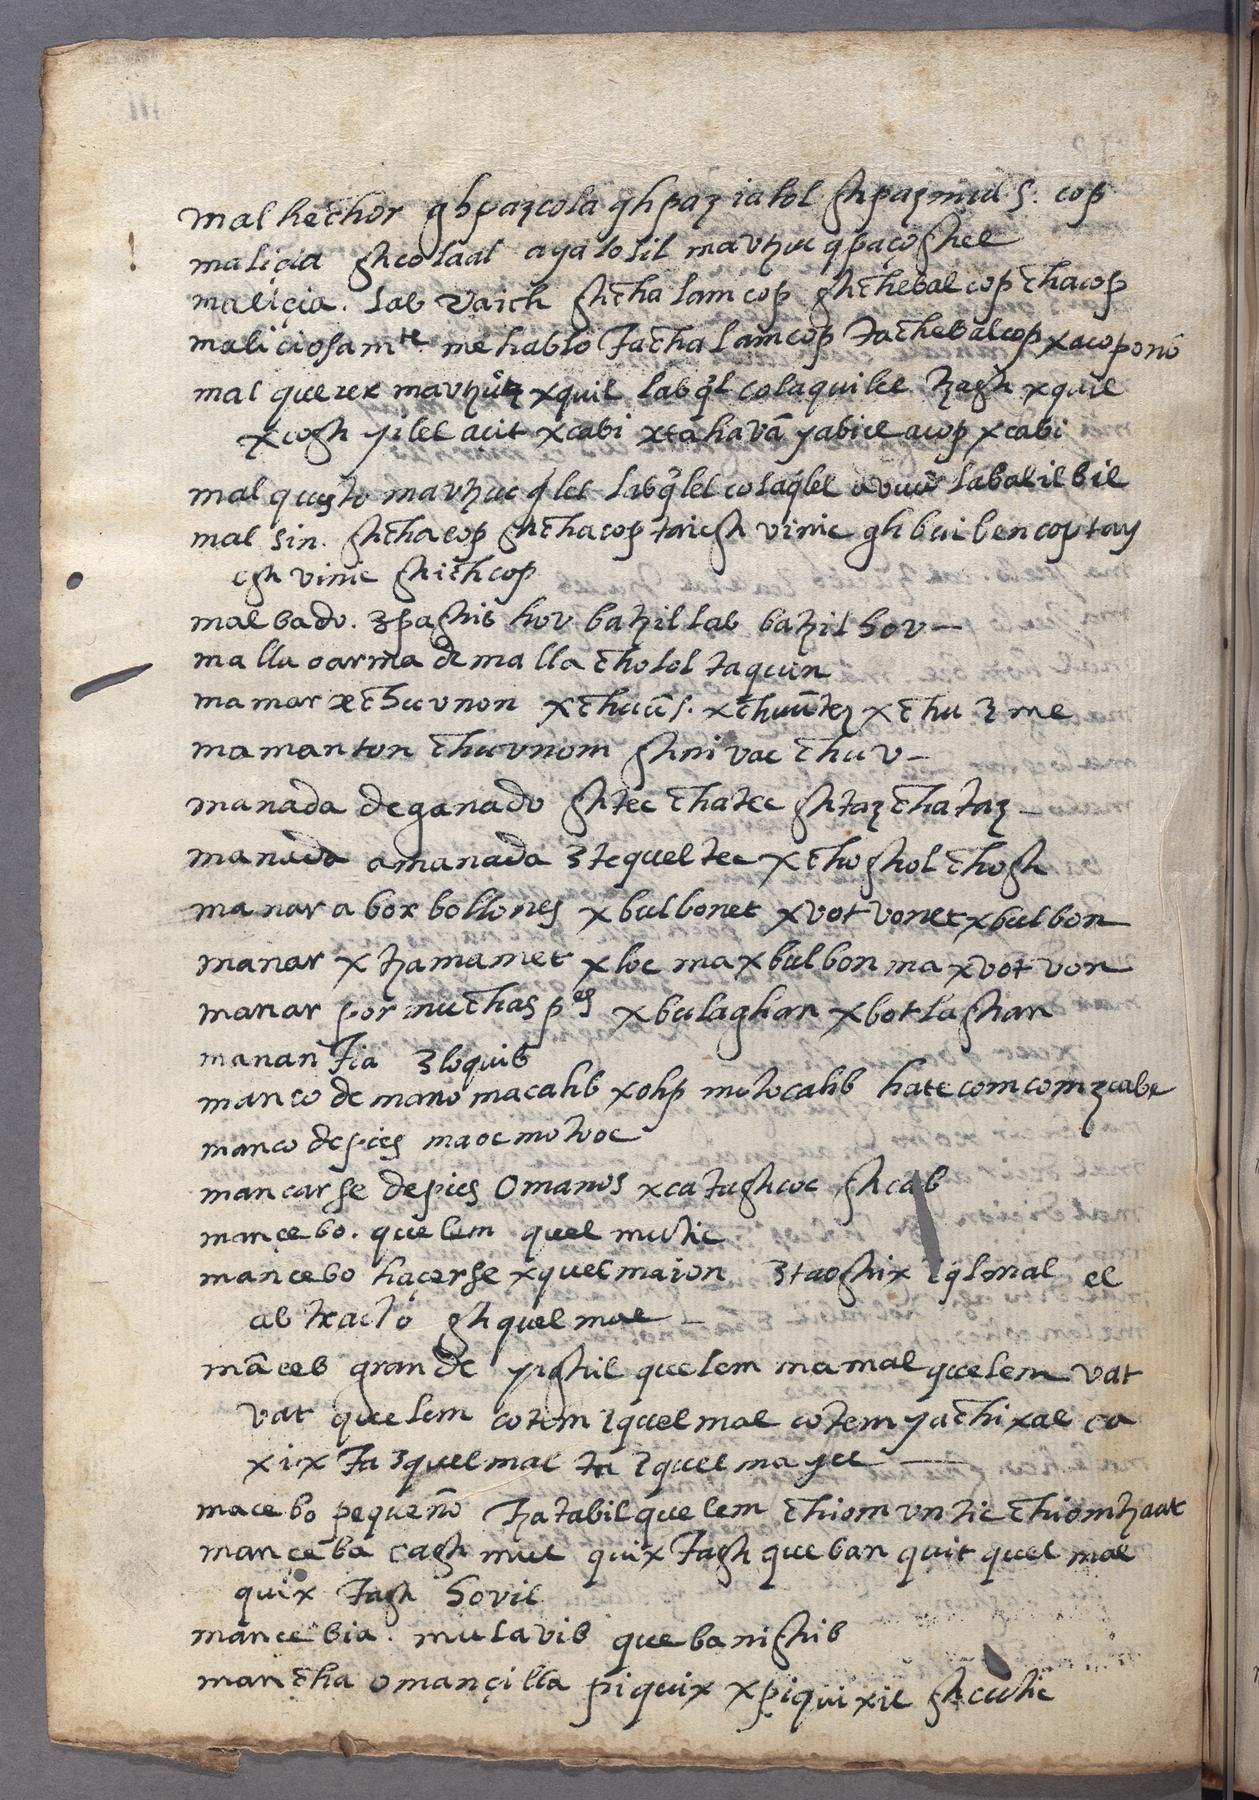 mal hechor ghpazcola ghpaz ialol ghpazmul s. cop
maliçia ghcolaal aya losil mavtzuc qpaçoghel
maliçia. lab vaich ghcha lam cop ghchebal cop chacop
maliciosamte me hablo tacha lamcop tachebalcop xacoponõ
mal querer xquil labql colaquilel tzagh xquil
xcogh yilel acit xcabi xtahavã yabiel acop xcabi
mal quisto mavtzuc qlel labqlel colaqlel labalilbil
mal sin. ghchacop ghchacop taiegh vinic gh buibencop tay
egh vinic ghichcop
malvado. 3paghib hov batzil lab batzil hov
malla o arma de malla cholol taquin
mamar xchuvnon xchuũ s. xchuũtez xchu 3 me
mamanton chuvnom ghni vac chuv
manada de ganado ghtec chatec ghtaz chataz
manada a manada 3tequeltec xchoghol chogh
manar a borbollones xbulbonet xvotvonet xbulbon
manar xtzamamet xloc ma xbulbon ma xvotvon
manar por muchas pes xbulaghan xbotlaghan
manantia 3loquib
manco de mano macahb xohp mutocahb hatecomcom 3cabe
manco de pies maoc motvoc
mancarse de pies o manos xcataghcoc ghcab
mançebo. quelem quel mutic
mancebo haçerse xquelmaion 3taoghix iqlmal el
abtracto ghquelmal
mãceb grande yighil quelem mamal quelem vat
vat quelem cotem iquelmal cotem yachixal co
xix ta 3quelmal ta iquelmayel
macebo pequeño tzatabil quelem chiom vntic chiomtzaat
manceba cagh mul quix tagh queban quit quelmal
quix tagh hovil
mancebia. mulavib quebanighib
mancha o mançilla piquix xpiquixil ghcutic